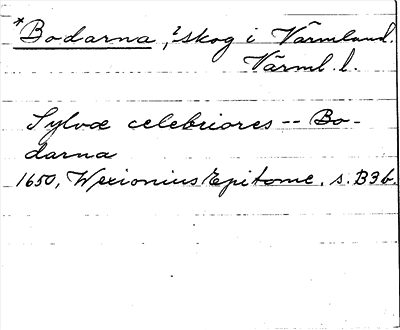 *Bodarna, ? skog i Värmland.
Värml. l.
Sylvæ celebriores -- Bo-
darna
1650, Wexionius Epitome, s. B3b.